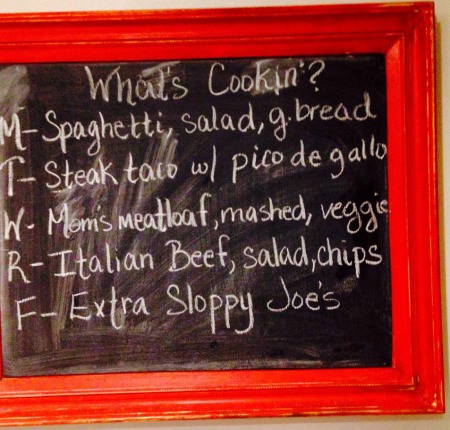 What's Cookin'?
M- Spaghetti, salad, g.bread
T- Steak taco w/ pico de gallo
W- Mom's meatloaf, mashed, veggie
R- Italian Beef, salad, chips
F- Extra Sloppy Joe's